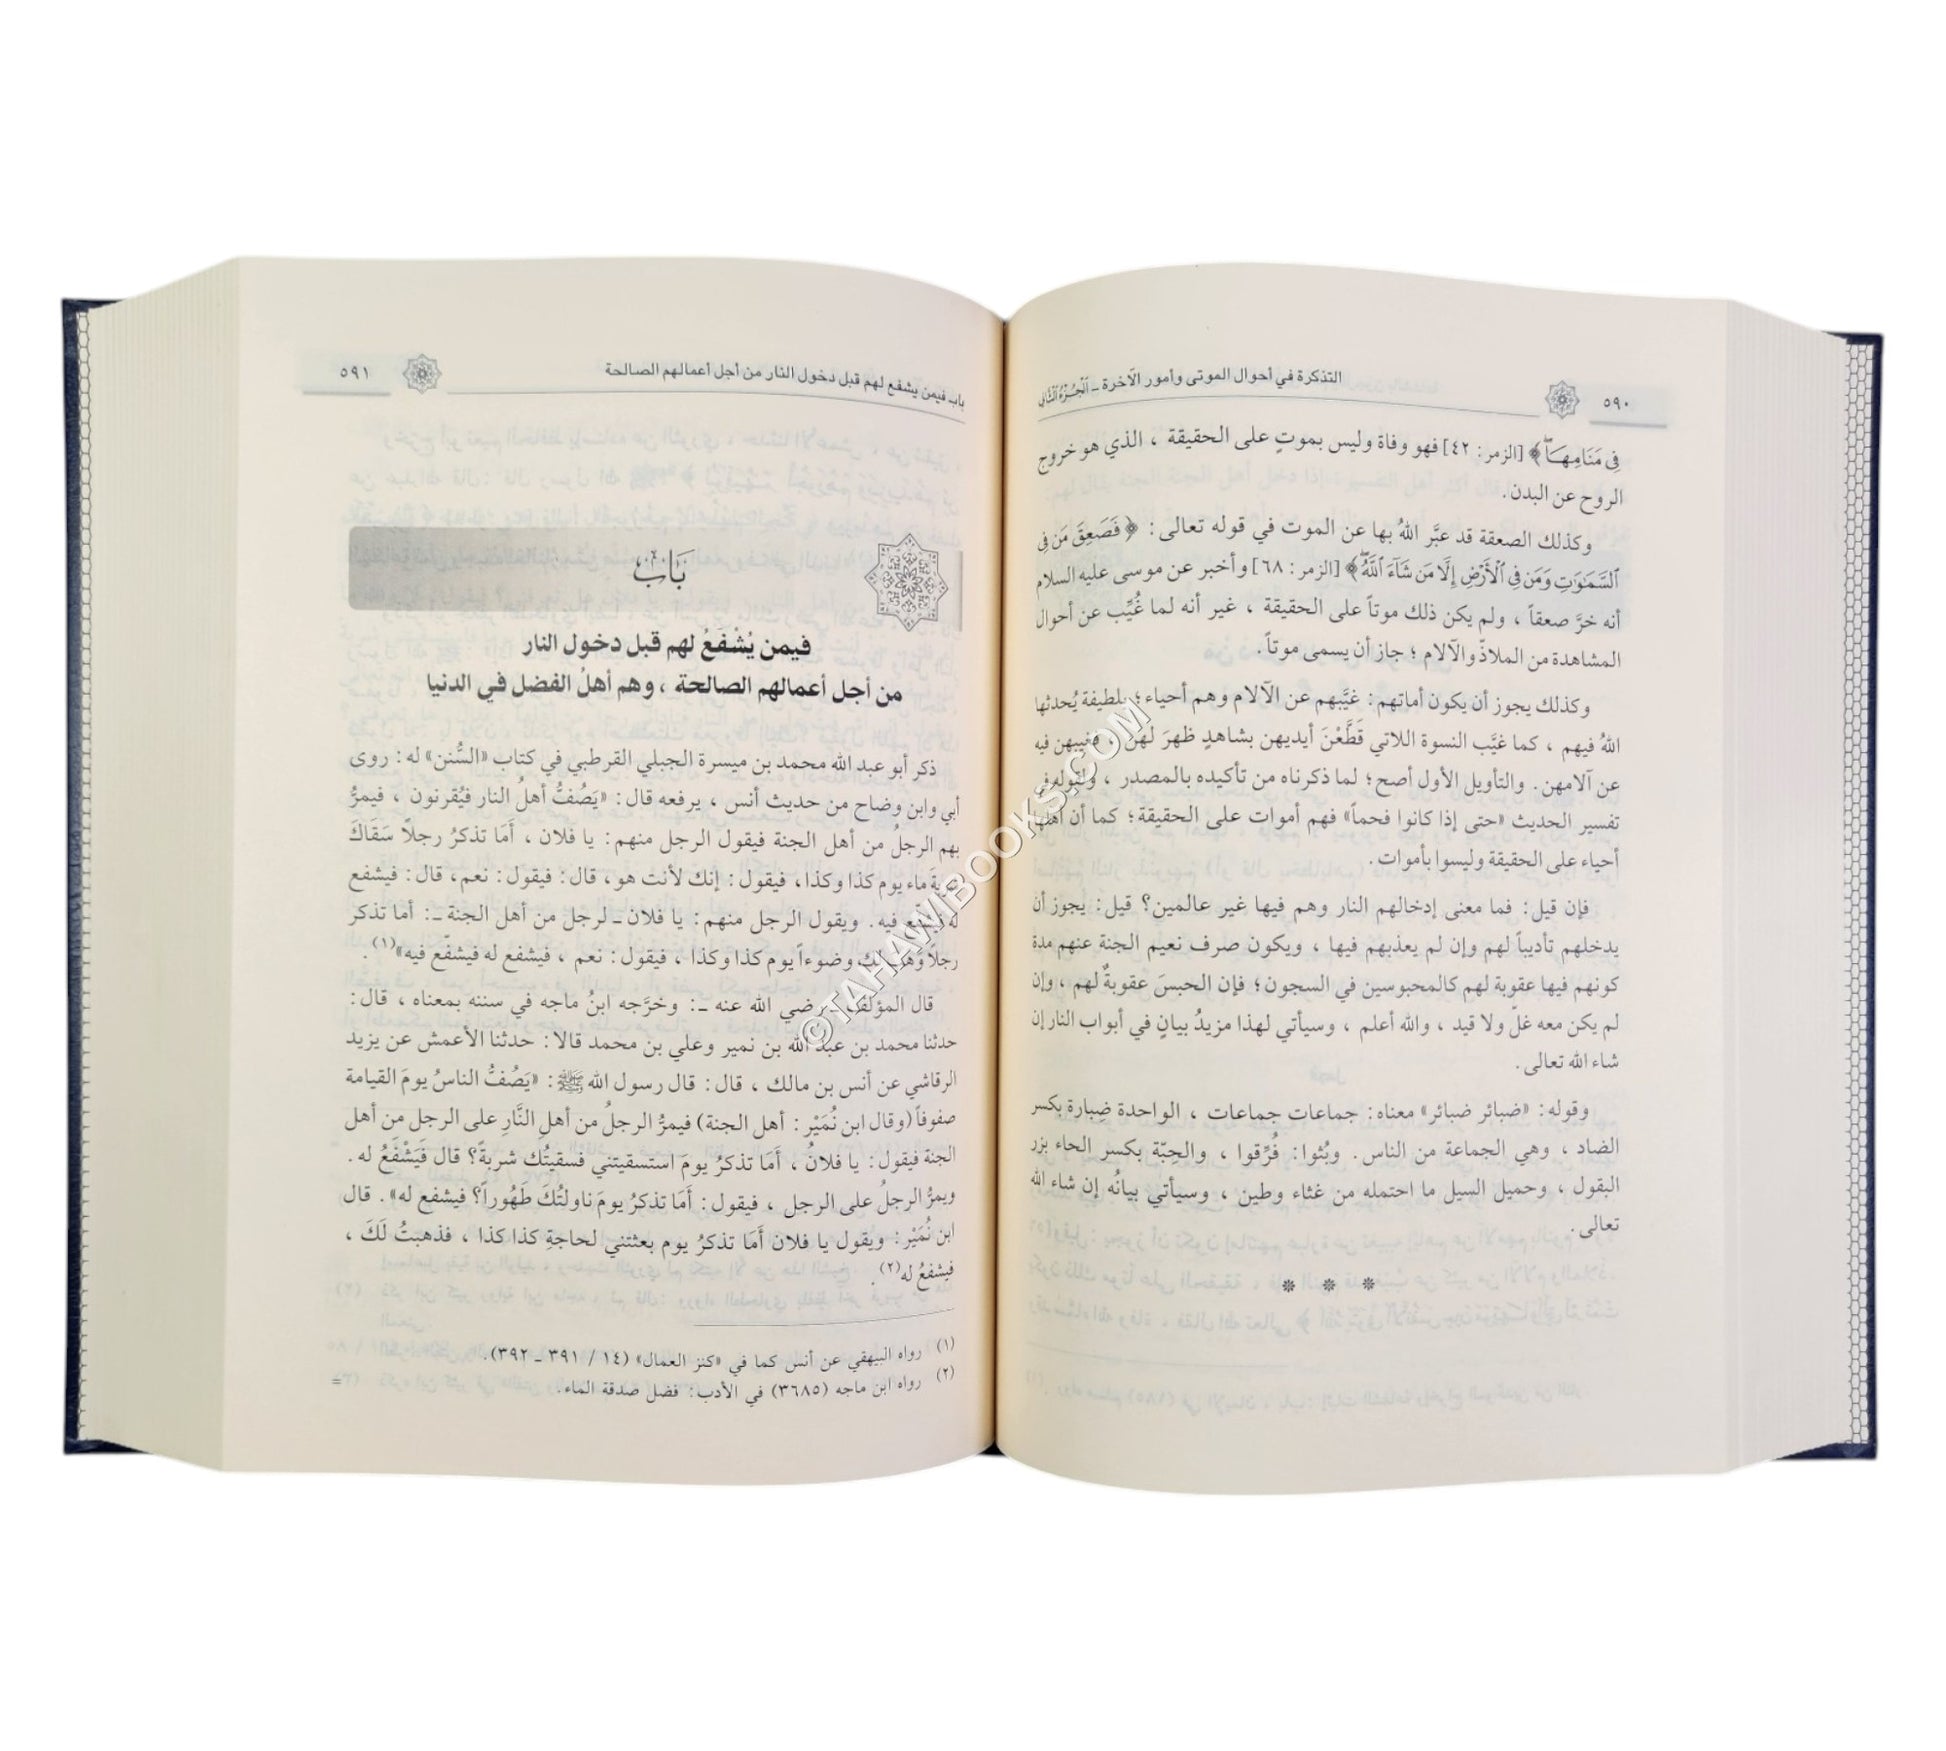 ٥٩٠
التذكرة في أحوال الموتى وأمور الآخرة ـ الجزء الثاني
فِي مَنَامِهَا﴾ [الزمر: ٤٢] فهو وفاة وليس بموتٍ على الحقيقة ، الذي هو خروج
الروح عن البدن.
وكذلك الصعقة قد عبَّر اللهُ بها عن الموت في قوله تعالى: ﴿فَصَعِقَ مَن فِي
السَّمَوَتِ وَمَن فِي الْأَرْضِ إِلَّا مَن شَآءَ اللَّهُ﴾ [الزمر: ٦٨] وأخبر عن موسى عليه السلام
أنه خرَّ صعقاً ، ولم يكن ذلك موتاً على الحقيقة ، غير أنه لما غُيِّب عن أحوال
المشاهدة من الملاذّ والآلام ؛ جاز أن يسمى موتاً.
وكذلك يجوز أن يكون أماتهم: غيَّبهم عن الآلام وهم أحياء؛ بلطيفة يُحدثها
اللهُ فيهم ، كما غيَّب النسوة اللاتي قَطَّعْنَ أيديهن بشاهدٍ ظهرَ لهن ، فغيبهن فيه
عن آلامهن. والتأويل الأول أصح؛ لما ذكرناه من تأكيده بالمصدر ، ولقوله في
تفسير الحديث «حتى إذا كانوا فحماً» فهم أموات على الحقيقة؛ كما أن أهلها
أحياء على الحقيقة وليسوا بأموات.
فإن قيل: فما معنى إدخالهم النار وهم فيها غير عالمين؟ قيل: يجوز أن
يدخلهم تأديباً لهم وإن لم يعذبهم فيها ، ويكون صرف نعيم الجنة عنهم مدة
كونهم فيها عقوبة لهم كالمحبوسين في السجون؛ فإن الحبسَ عقوبةٌ لهم ، وإن
لم يكن معه غلّ ولا قيد ، والله أعلم ، وسيأتي لهذا مزيدُ بيانٍ في أبواب النار إن
شاء الله تعالى.
وقوله: «ضبائر ضبائر» معناه: جماعات جماعات ، الواحدة ضِبارة بكسر
الضاد ، وهي الجماعة من الناس. وبُثوا: فُرِّقوا ، والحِبّة بكسر الحاء بزر
البقول ، وحميل السيل ما احتمله من غثاء وطين ، وسيأتي بيانُه إن شاء الله
تعالى.
* * *
باب فيمن يشفع لهم قبل دخول النار من أجل أعمالهم الصالحة
٥٩١
بَابُ
فيمن يُشْفَعُ لهم قبل دخول النار
من أجل أعمالهم الصالحة ، وهم أهلُ الفضل في الدنيا
ذكر أبو عبد الله محمد بن ميسرة الجبلي القرطبي في كتاب «السُّنن» له: روى
أبي وابن وضاح من حديث أنس ، يرفعه قال: «يَصُفُّ أهلُ النار فيُقرنون ، فيمرُّ
بهم الرجلُ من أهل الجنة فيقول الرجل منهم: يا فلان ، أَمَا تذكرُ رجلاً سَقَاكَ
شربةَ ماء يوم كذا وكذا، فيقول: إنك لأنت هو، قال: فيقول: نعم، قال: فيشفع
له فيشفّع فيه. ويقول الرجل منهم: يا فلان ـ لرجل من أهل الجنة ـ: أما تذكر
رجلاً وهب لك وضوءاً يوم كذا وكذا ، فيقول: نعم ، فيشفع له فيشفّع فيه»(١).
قال المؤلف ـ رضي الله عنه ـ: وخرَّجه ابنُ ماجه في سننه بمعناه ، قال:
حدثنا محمد بن عبد الله بن نمير وعلي بن محمد قالا: حدثنا الأعمش عن يزيد
الرقاشي عن أنس بن مالك ، قال: قال رسول الله ﷺ: «يَصُفُّ الناسُ يومَ القيامة
صفوفاً (وقال ابن نُمَيْر: أهل الجنة) فيمرُّ الرجلُ من أهلِ النَّارِ على الرجل من أهل
الجنة فيقول: يا فلانُ ، أَمَا تذكرُ يومَ استسقيتني فسقيتُك شربةً؟ قال فَيَشْفَعُ له.
ويمرُّ الرجلُ على الرجل ، فيقول: أَمَا تذكرُ يومَ ناولتُكَ طَهُوراً؟ فيشفع له». قال
ابن نُمَيْر: ويقول يا فلان أَمَا تذكرُ يوم بعثتني لحاجةِ كذا كذا ، فذهبتُ لَكَ ،
فيشفعُ له(٢).
(١) رواه البيهقي عن أنس كما في «كنز العمال» (١٤ / ٣٩١ ـ ٣٩٢).
(٢) رواه ابن ماجه (٣٦٨٥) في الأدب: فضل صدقة الماء. =
©TAHAWIBOOKS.COM